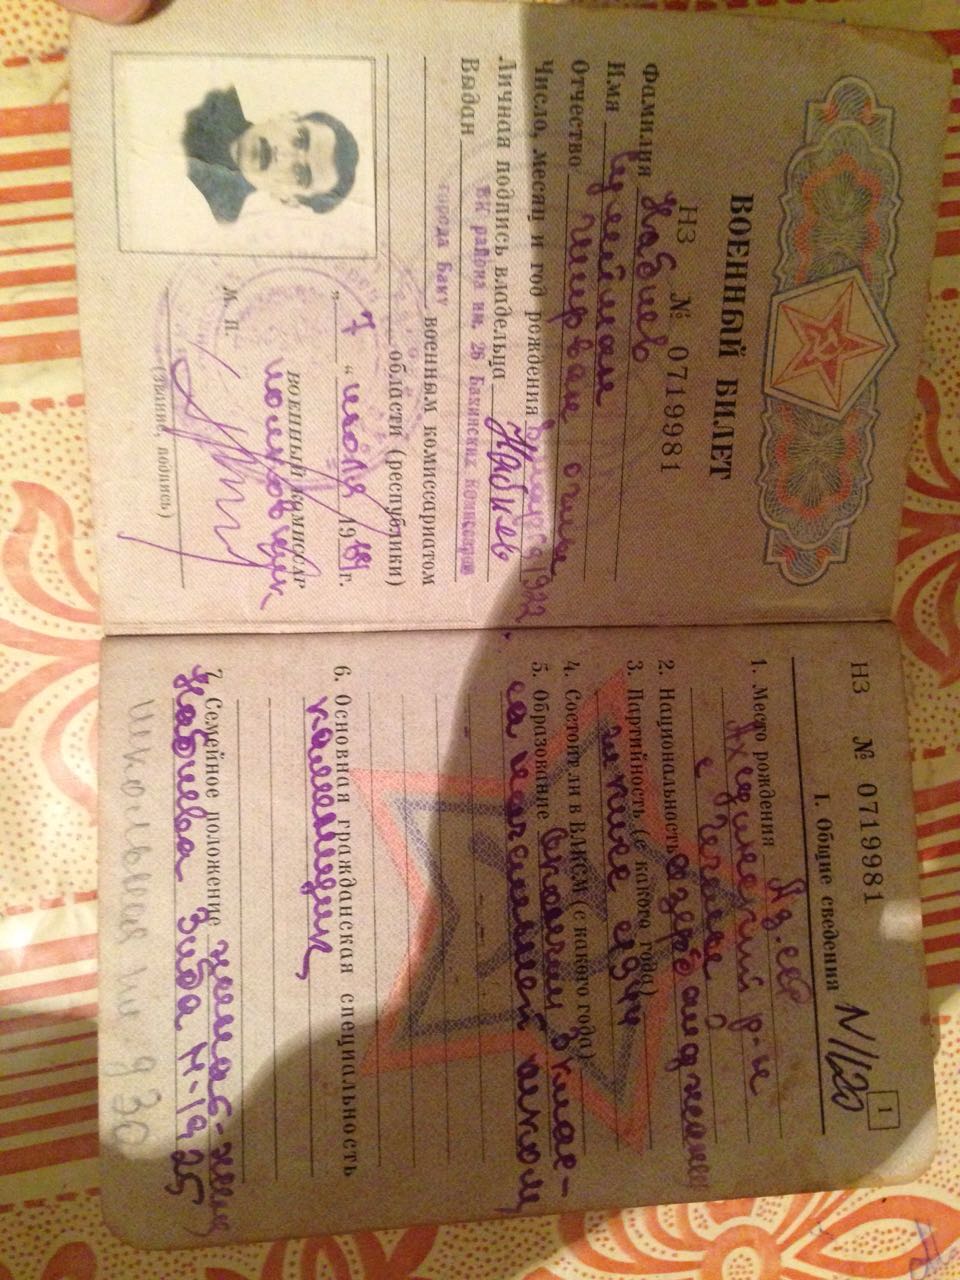 ВОЕННЫЙ БИЛЕТ
НЗ № 0719981
Фамилия Набиев
Имя Сулейман
Отчество Ширван оглы
Число, месяц и год рождения 1922
Личная подпись владельца Набиев
Выдан ВК района им. 26 Бакинских комиссаров
города Баку
военным комиссариатом
области (республики)
„7“ июля 1948 г.
ВОЕННЫЙ КОМИССАР
М. П.
(звание, подпись)
НЗ № 0719981
1
I. Общие сведения
1. Место рождения Аз. ССР
р-н
с
2. Национальность азербайджанец
3. Партийность (с какого года)
4. Состоял ли в ВЛКСМ (с какого года)
5. Образование окончил 3 клас-
са начальной школы
6. Основная гражданская специальность
7. Семейное положение женат - жена
Набиева Зиба Н-1925